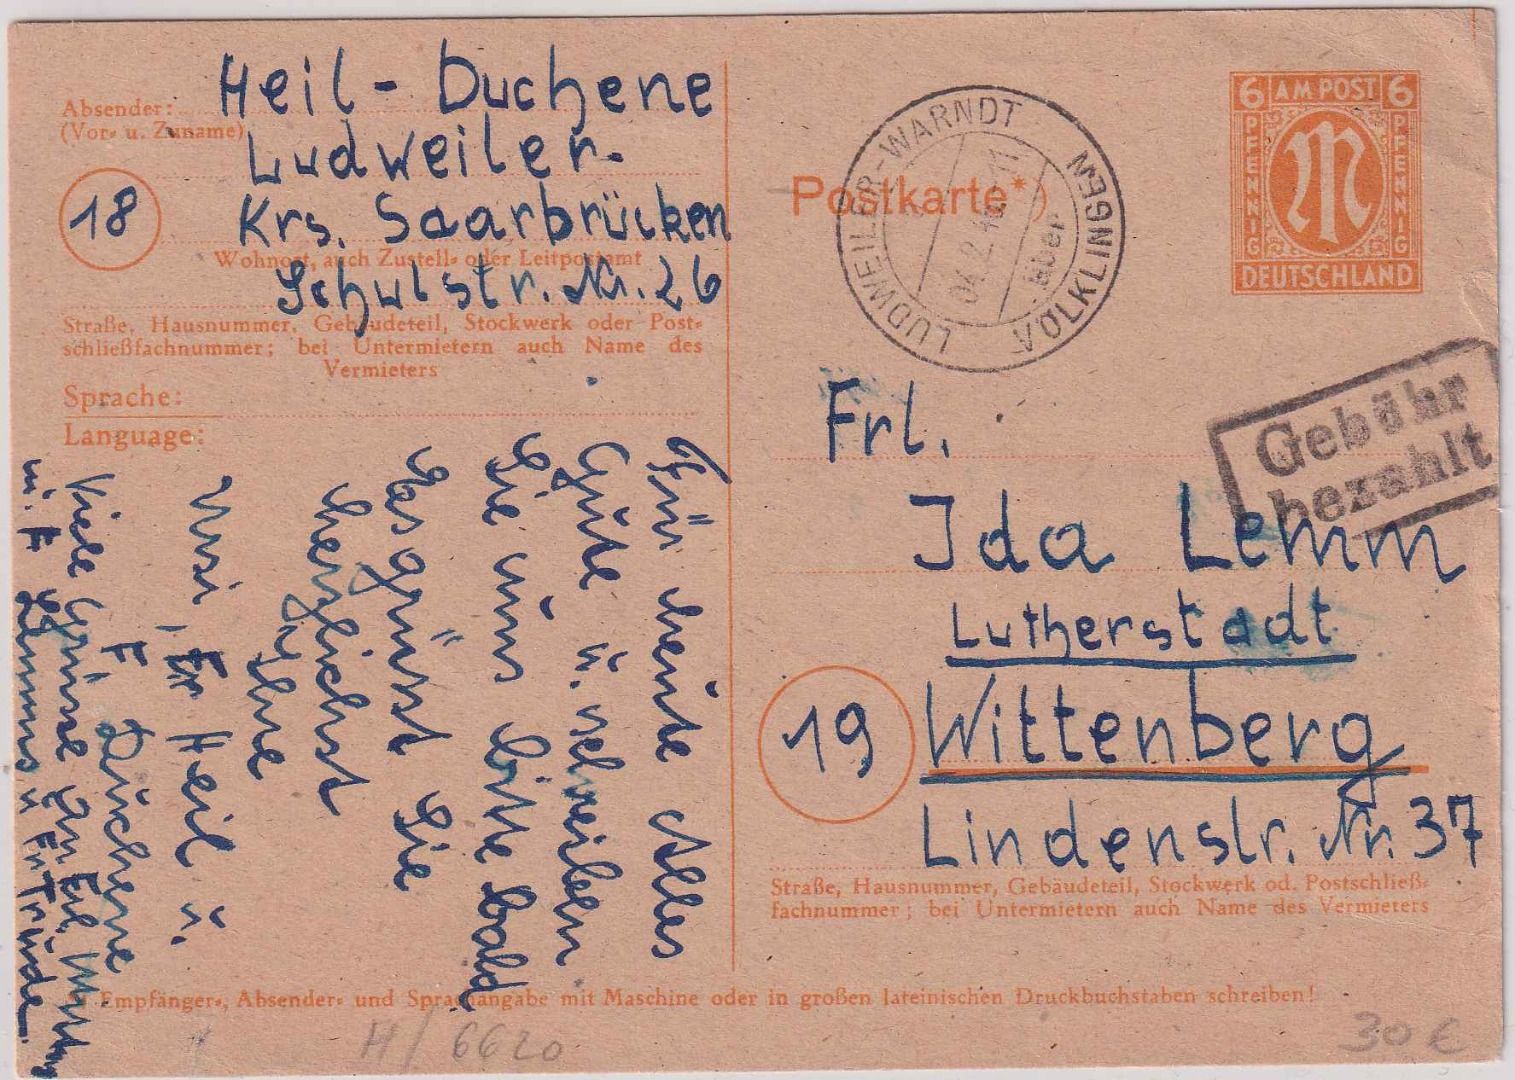 Absender:
(Vor- u. Zuname)
Heil - Duchene
Ludweiler.
18
Krs. Saarbrücken
Wohnort, auch Zustell- oder Leitpostamt
Schulstr. Nr. 26
Straße, Hausnummer, Gebäudeteil, Stockwerk oder Post-
schließfachnummer; bei Untermietern auch Name des
Vermieters
Sprache:
Language:
Für heute Alles
Gute u. schreiben
Sie uns bitte bald
Es grüßt Sie
herzlichst
Ihre
Fr Heil u.
F Duchene
Viele Grüsse an
Postkarte*)
LUDWEILER-WARNDT
über
VÖLKLINGEN
6 AM POST 6
PFENNIG
PFENNIG
M
DEUTSCHLAND
Gebühr
bezahlt
Frl.
Ida Lemm
Lutherstadt
19
Wittenberg
Lindenstr. Nr. 37
Straße, Hausnummer, Gebäudeteil, Stockwerk od. Postschließ-
fachnummer; bei Untermietern auch Name des Vermieters
Empfänger-, Absender- und Sprachangabe mit Maschine oder in großen lateinischen Druckbuchstaben schreiben!
H/6620
30 €